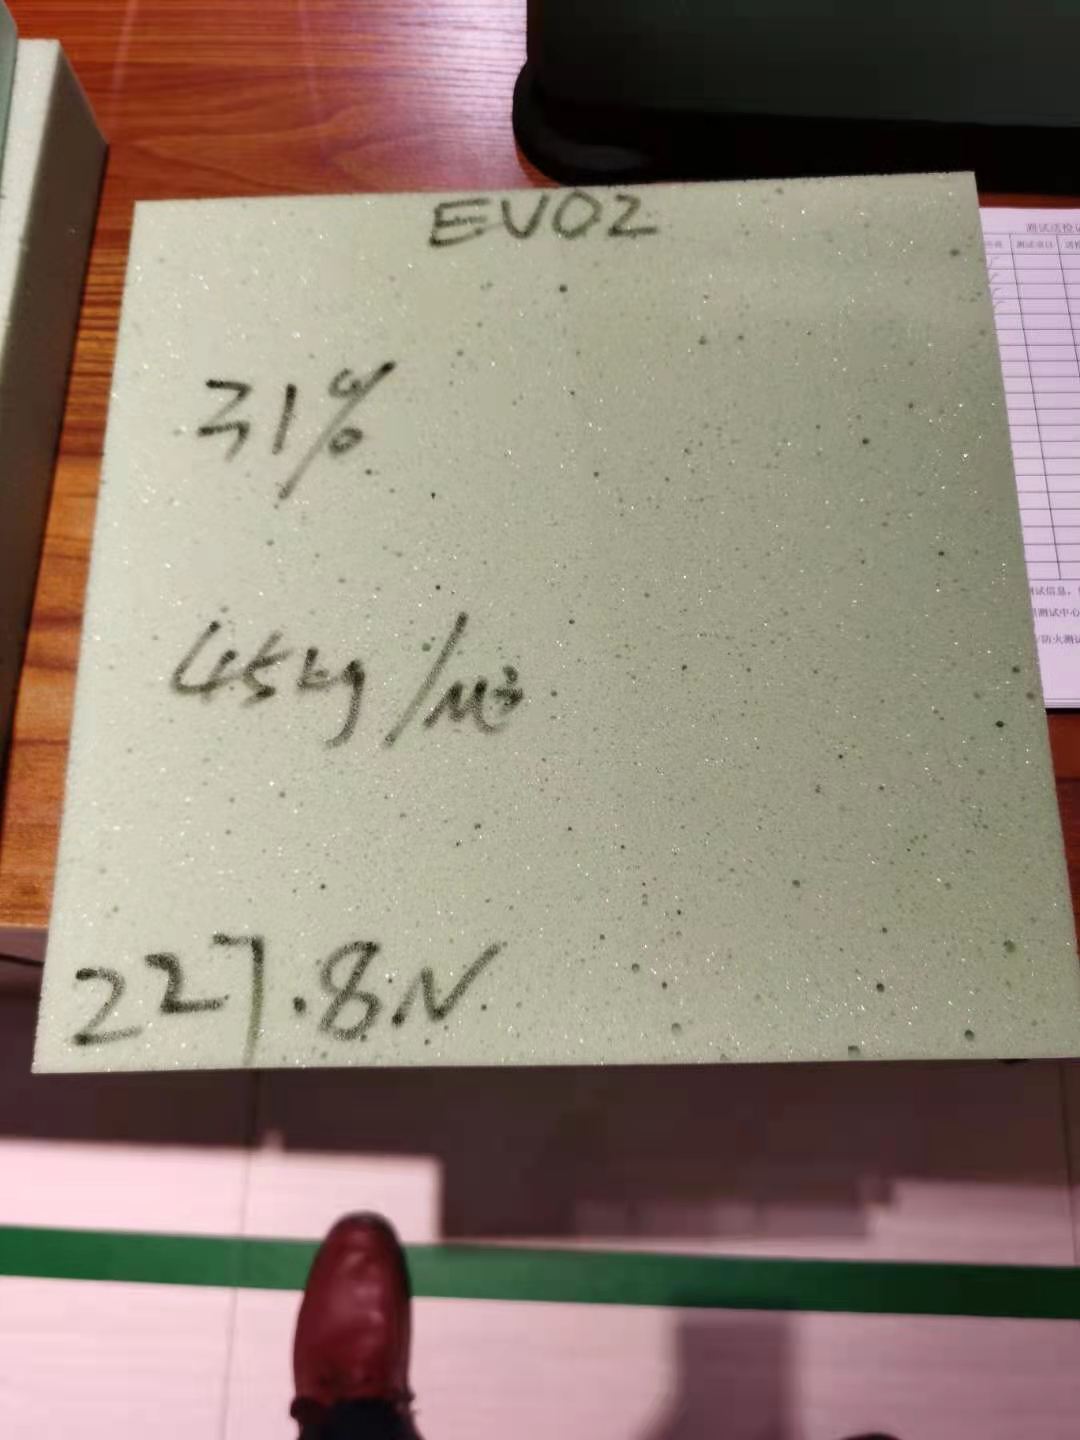 EVO2
31%
45kg/M³
227.8N
测试送检
测试项目
测试信息,
测试中心
/防火测试